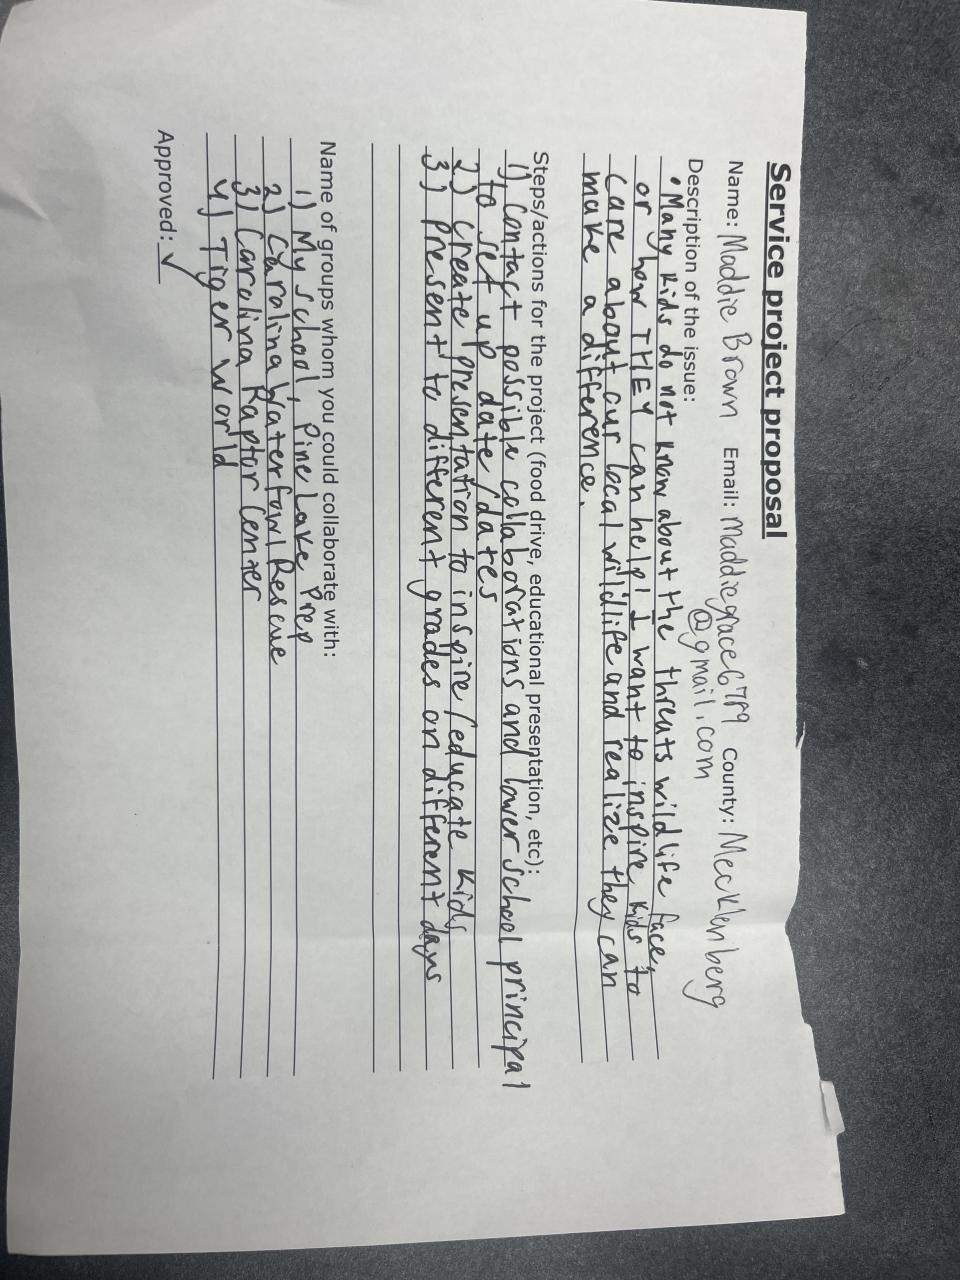 Service project proposal
Name: Maddie Brown Email: maddiegrace6789 County: Mecklenberg
@gmail.com
Description of the issue:
• Many kids do not know about the threats wildlife face,
or how THEY can help! I want to inspire kids to
care about our local wildlife and realize they can
make a difference.
Steps/actions for the project (food drive, educational presentation, etc):
1) Contact possible collaborations and lower school principal
to set up date/dates
2) create presentation to inspire/educate kids
3) Present to different grades on different days
Name of groups whom you could collaborate with:
1) My school, Pine Lake Prep
2) Carolina Waterfowl Rescue
3) Carolina Raptor Center
4) Tiger World
Approved: ✓